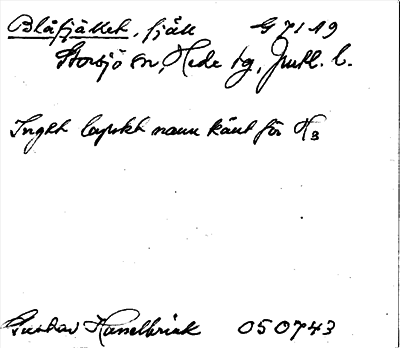 Blåfjället, fjäll G 7119
Storsjö sn, Hede tg, Jmtl. l.
Inget lapskt namn känt för H3
Gustav Hasselbrink 050743